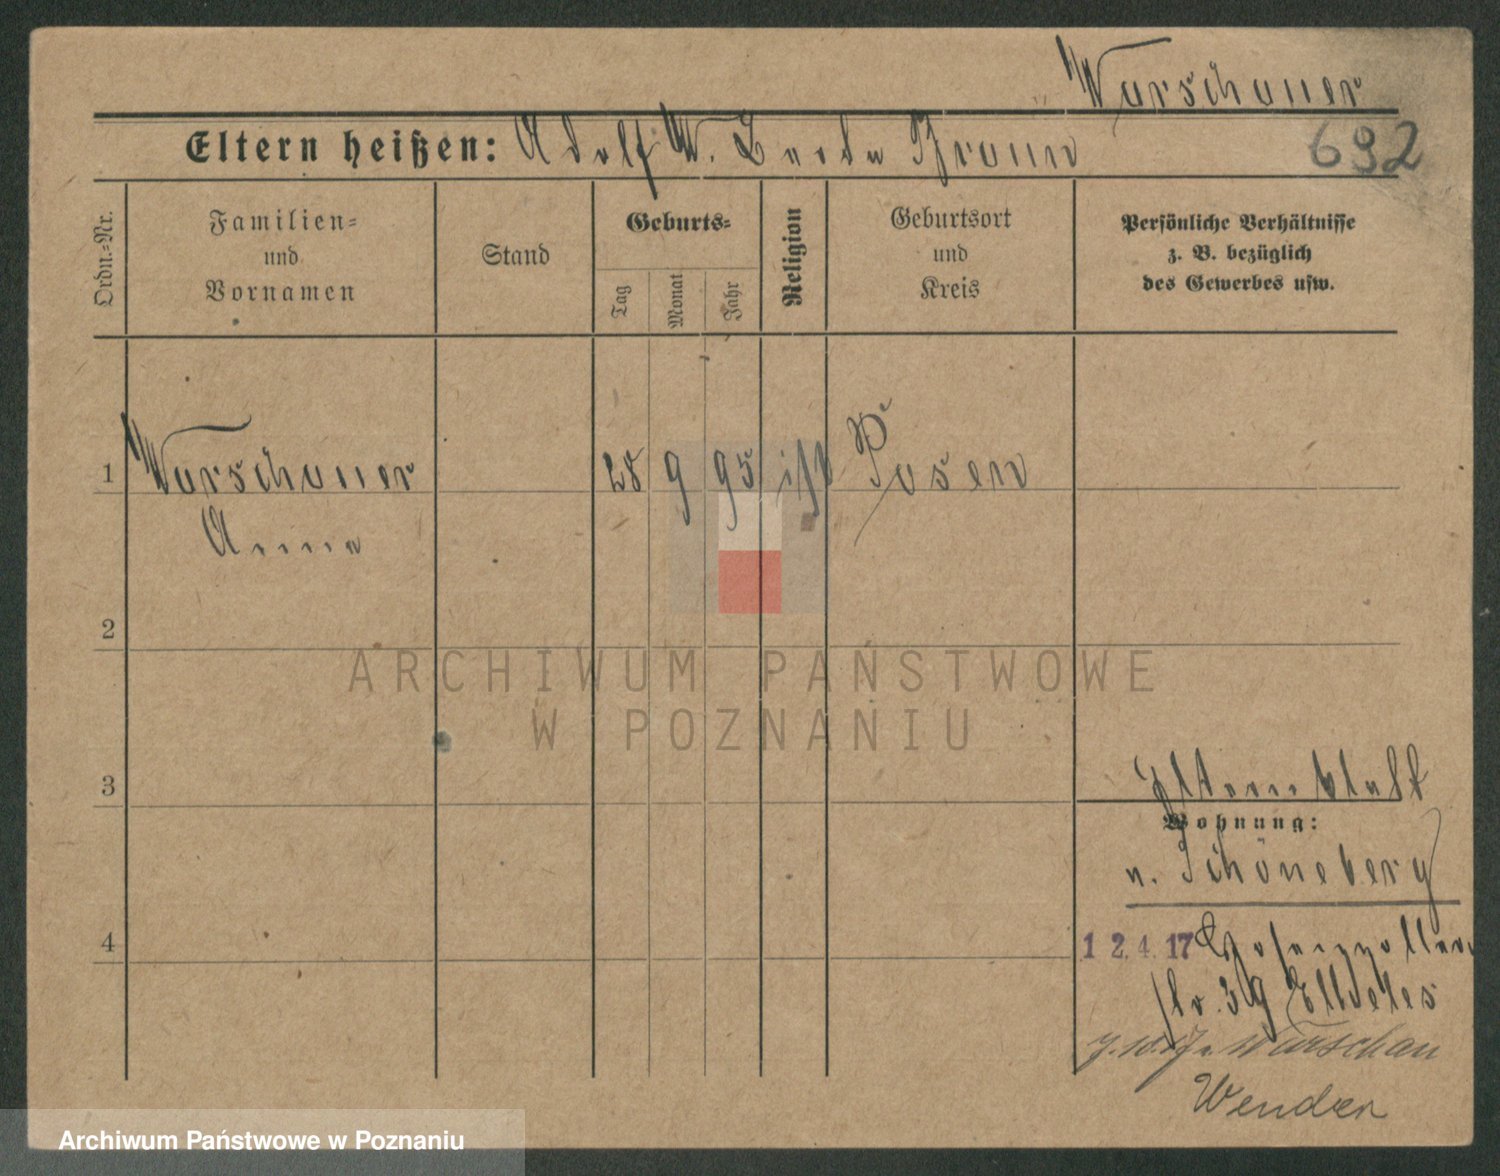 Warschauer
Eltern heißen: Adolf W. Berta Brann
692
Ordn.=Nr.
Familien=
und
Vornamen
Stand
Geburts=
Tag
Monat
Jahr
Religion
Geburtsort
und
Kreis
Persönliche Verhältnisse
z. B. bezüglich
des Gewerbes usw.
1
Warschauer 28 9 95 isr Posen
Anna
2
3
Elternblatt
Wohnung:
n. Schöneberg
4
12.4.17 Hohenzollern
str. 39
Warschau
Wender
ARCHIWUM PAŃSTWOWE
W POZNANIU
Archiwum Państwowe w Poznaniu